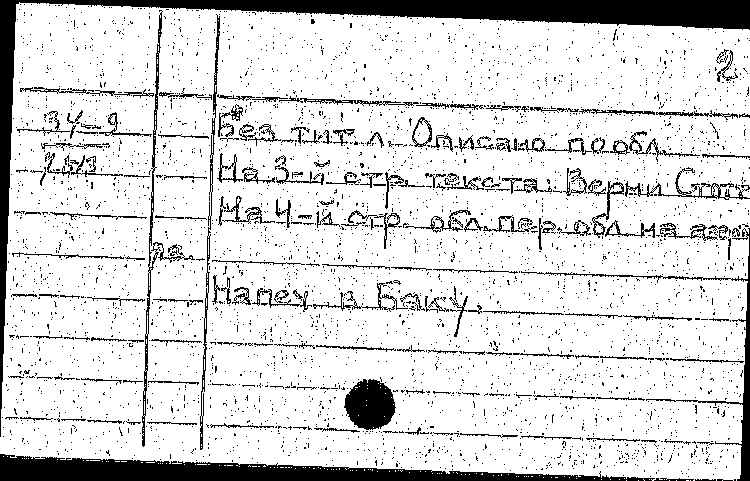 2
34-9
Без тит. л. Описано по обл.
На 3-й стр. текста: Верни
На 4-й стр. обл. пер. обл. на
ра.
Напеч. в Баку.